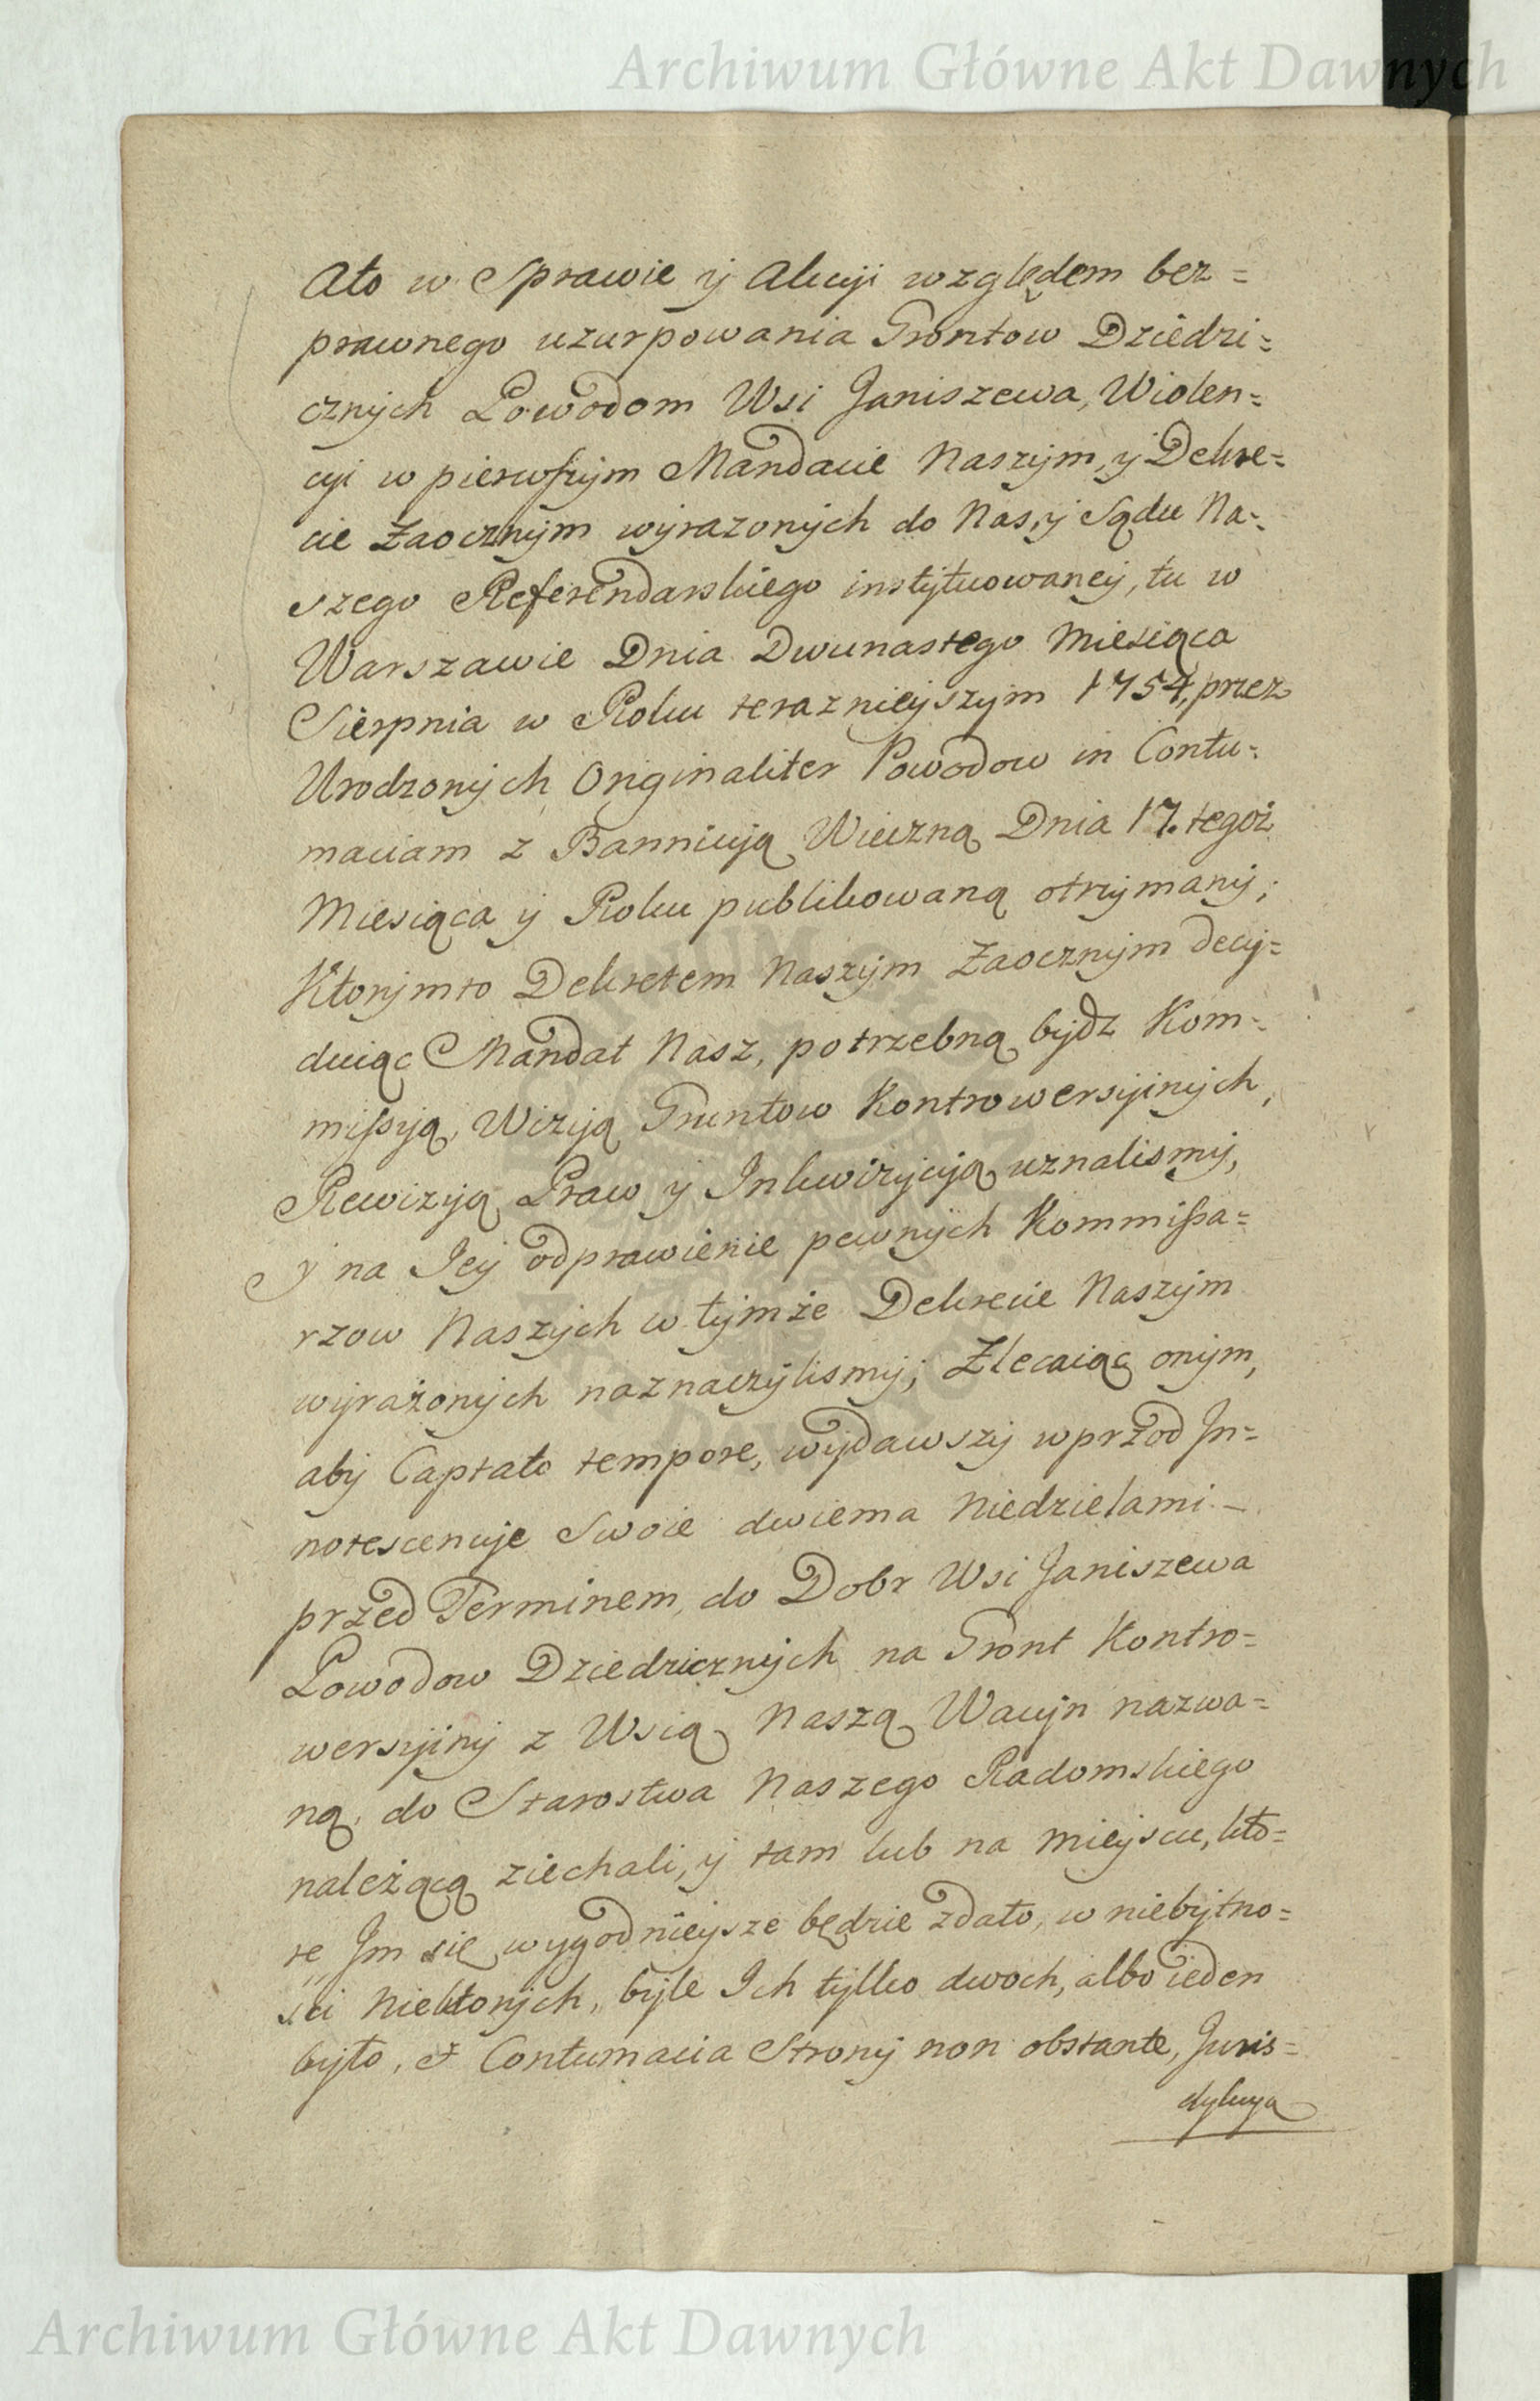 Archiwum Główne Akt Dawnych
Ato w Sprawie y Akcyi względem bez=
prawnego uzurpowania Grontow Dziedzi=
cznych Powodom Wsi Janiszewa, Wiolen=
cyi w pierwszym Mandacie Naszym, y Dekre=
cie Zaocznym wyrazonych do Nas, y Sądu Na=
szego Referendarskiego instytuowaney, tu w
Warszawie Dnia Dwunastego Miesiąca
Sierpnia w Roku teraznieyszym 1754, przez
Urodzonych Originaliter Powodow in Contu=
maciam z Bannicyą Wieczną Dnia 17. tegoż
Miesiąca y Roku publikowaną otrzymany;
Ktorymto Dekretem Naszym Zaocznym decy=
duiąc Mandat Nasz, potrzebną bydz Kom=
missyą, Wizyą Gruntow Kontrowersyinych,
Rewizyą Praw y Inkwizycyą uznalismy,
y na Jey odprawienie pewnych Kommissa=
rzow Naszych w tymże Dekrecie Naszym
wyrażonych naznaczylismy; Zlecaiąc onym,
aby Captato tempore, wydawszy wprzod In=
notescencye Swoie dwiema Niedzielami –
przed Terminem, do Dobr Wsi Janiszewa
Powodow Dziedzicznych na Gront Kontro=
wersyiny z Wsią Naszą Wacyn nazwa=
ną, do Starostwa Naszego Radomskiego
należącą ziechali, y tam lub na mieyscu, kto=
re Im się wygodnieysze będzie zdało, w niebytno=
sci Niektorych, byle Ich tylko dwoch, albo ieden
było, et Contumacia Strony non obstante, Juris=
dykcya
Archiwum Główne Akt Dawnych